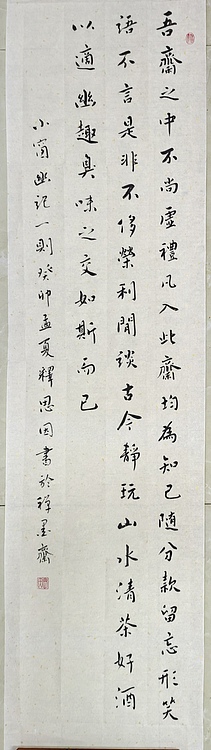 吾齋之中不尚虛禮凡入此齋均為知己隨分款留忘形笑
語不言是非不侈榮利閒談古今靜玩山水清茶好酒
以適幽趣臭味之交如斯而已
小窗幽記一則癸卯孟夏釋思因書於禪墨齋